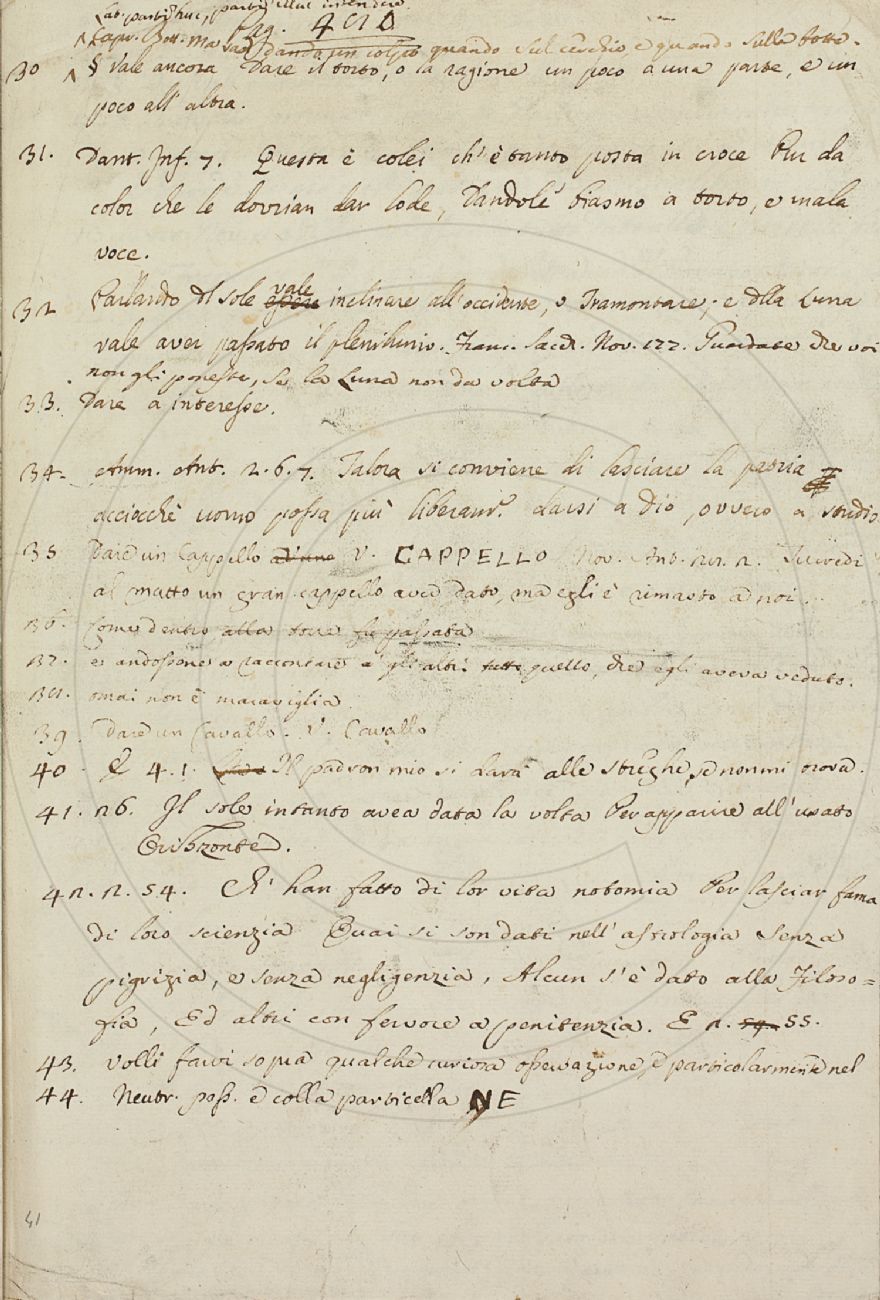 Lat. parti huic, parti illui intendere
Capr. Bott. Ma Pag. 410
dando un colpo quando sul cerchio, e quando sulla botte.
30 § Vale ancora Dare il torto, o la ragione un poco a una parte, e un
poco all' altra.
31. Dant. Inf. 7. Questa è colei ch' è tanto posta in croce Pur da
color che le dovrian dar lode, Dandole biasmo a torto, e mala
voce.
32 Parlando del sole vale inclinare all'occidente, o Tramontare; e della Luna
vale aver passato il plenilunio. Franc. Sacch. Nov. 177. Guardate che voi
non gli poneste, se la Luna non da volta
33. Dare a interesse.
34. Amm. Ant. 2. 6. 7. Talora si conviene di lasciare la patria
acciocchè uomo possa più liberam.e darsi a Dio, ovvero a studio
35 Dare un Cappello V. CAPPELLO Nov. Ant.
al matto un gran cappello avea dato, ma egli è rimasto a noi.
36. Come dentro alla torre fu passata
37. e andossene a raccontare a gli altri tutto quello, che egli aveva veduto.
38. omai non è maraviglia
39. Dare un Cavallo. V. Cavallo
40. E 4. 1. Il padron mio si darà alle streghe, se non mi trova.
41. 26. Il sole intanto avea data la volta Per apparire all' usato
Orizzonte.
42. 2. 54. Ch' han fatto di lor vita notomia Per lasciar fama
di loro scienzia Quai si son dati nell' astrologia Senza
pigrizia, e senza negligenzia, Alcun s' è dato alla Filoso=
fia, Ed altri con fervore a penitenzia. E 2. 54. 55.
43. volli farvi sopra qualche curiosa osservazione, e particolarmente nel
44. Neutr. pass. e colla particella NE
41